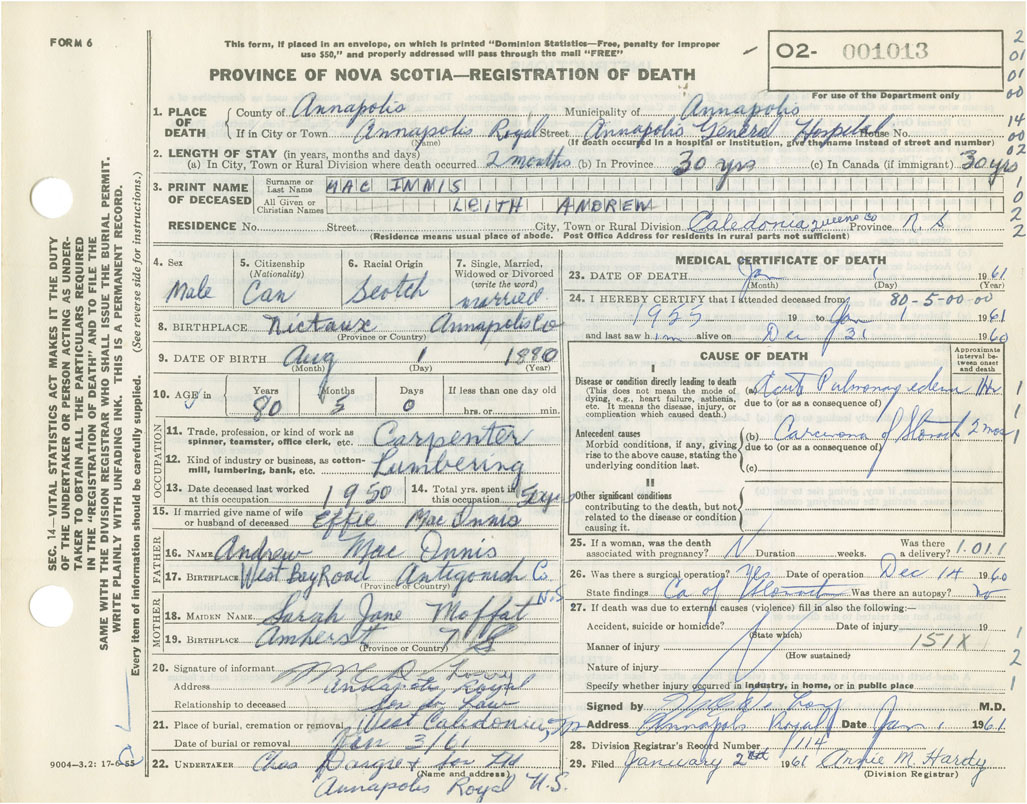 FORM 6
This form, if placed in an envelope, on which is printed "Dominion Statistics—Free, penalty for improper
use $50," and properly addressed will pass through the mail "FREE"
PROVINCE OF NOVA SCOTIA—REGISTRATION OF DEATH
02- 001013
For use of the Department only
2
01
01
00
14
00
02
1
0
2
2
SEC. 14—VITAL STATISTICS ACT MAKES IT THE DUTY
OF THE UNDERTAKER OR PERSON ACTING AS UNDER-
TAKER TO OBTAIN ALL THE PARTICULARS REQUIRED
IN THE "REGISTRATION OF DEATH" AND TO FILE THE
SAME WITH THE DIVISION REGISTRAR WHO SHALL ISSUE THE BURIAL PERMIT.
WRITE PLAINLY WITH UNFADING INK. THIS IS A PERMANENT RECORD.
Every item of information should be carefully supplied. (See reverse side for instructions.)
1. PLACE OF DEATH
County of Annapolis Municipality of Annapolis
If in City or Town Annapolis Royal Street Annapolis General Hospital House No.
(Name) (If death occurred in a hospital or institution, give the name instead of street and number)
2. LENGTH OF STAY (in years, months and days)
(a) In City, Town or Rural Division where death occurred 2 months (b) In Province 30 yrs (c) In Canada (if immigrant) 30 yrs
3. PRINT NAME OF DECEASED
Surname or Last Name MAC INNIS
All Given or Christian Names LEITH ANDREW
RESIDENCE No. Street City, Town or Rural Division Caledonia Queens Co Province N.S
(Residence means usual place of abode. Post Office Address for residents in rural parts not sufficient)
4. Sex Male
5. Citizenship (Nationality) Can
6. Racial Origin Scotch
7. Single, Married, Widowed or Divorced (write the word) married
8. BIRTHPLACE Nictaux Annapolis Co
(Province or Country)
9. DATE OF BIRTH Aug 1 1880
(Month) (Day) (Year)
10. AGE in Years 80 Months 5 Days 0 If less than one day old hrs. or min.
OCCUPATION
11. Trade, profession, or kind of work as spinner, teamster, office clerk, etc. Carpenter
12. Kind of industry or business, as cotton-mill, lumbering, bank, etc. Lumbering
13. Date deceased last worked at this occupation 1950
14. Total yrs. spent in this occupation
15. If married give name of wife or husband of deceased Effie Mac Innis
FATHER
16. NAME Andrew Mac Innis
17. BIRTHPLACE West Bay Road Antigonish Co N.S
(Province or Country)
MOTHER
18. MAIDEN NAME Sarah Jane Moffat
19. BIRTHPLACE Amherst N S
(Province or Country)
20. Signature of informant
Address Annapolis Royal
Relationship to deceased Son in Law
21. Place of burial, cremation or removal West Caledonia
Date of burial or removal Jan 3/61
22. UNDERTAKER Chas Dargie & Son Ltd
(Name and address)
Annapolis Royal N.S.
9004—3.2: 17-6-55
MEDICAL CERTIFICATE OF DEATH
23. DATE OF DEATH Jan 1 1961
(Month) (Day) (Year)
24. I HEREBY CERTIFY that I attended deceased from 80-5-00-00
1955 19 to Jan 1 1961
and last saw him alive on Dec 31 1960
CAUSE OF DEATH
Approximate interval between onset and death
I
Disease or condition directly leading to death
(This does not mean the mode of dying, e.g., heart failure, asthenia, etc. It means the disease, injury, or complication which caused death.)
(a) Acute Pulmonary edema 1 Hr 1
due to (or as a consequence of)
Antecedent causes
Morbid conditions, if any, giving rise to the above cause, stating the underlying condition last.
(b) Carcinoma of Stomach 2 mos 1
due to (or as a consequence of)
(c)
II
Other significant conditions
contributing to the death, but not related to the disease or condition causing it.
25. If a woman, was the death associated with pregnancy? N Duration weeks. Was there a delivery? 1.01.1
26. Was there a surgical operation? Yes Date of operation Dec 14 1960
State findings Ca of Stomach Was there an autopsy? no
27. If death was due to external causes (violence) fill in also the following:—
Accident, suicide or homicide? Date of injury 19 1
(State which)
Manner of injury 151X
(How sustained) 2
Nature of injury
Specify whether injury occurred in industry, in home, or in public place 1
Signed by M.D.
Address Annapolis Royal Date Jan 1 1961
28. Division Registrar's Record Number 114
29. Filed January 2nd 1961 Annie M. Hardy
(Division Registrar)